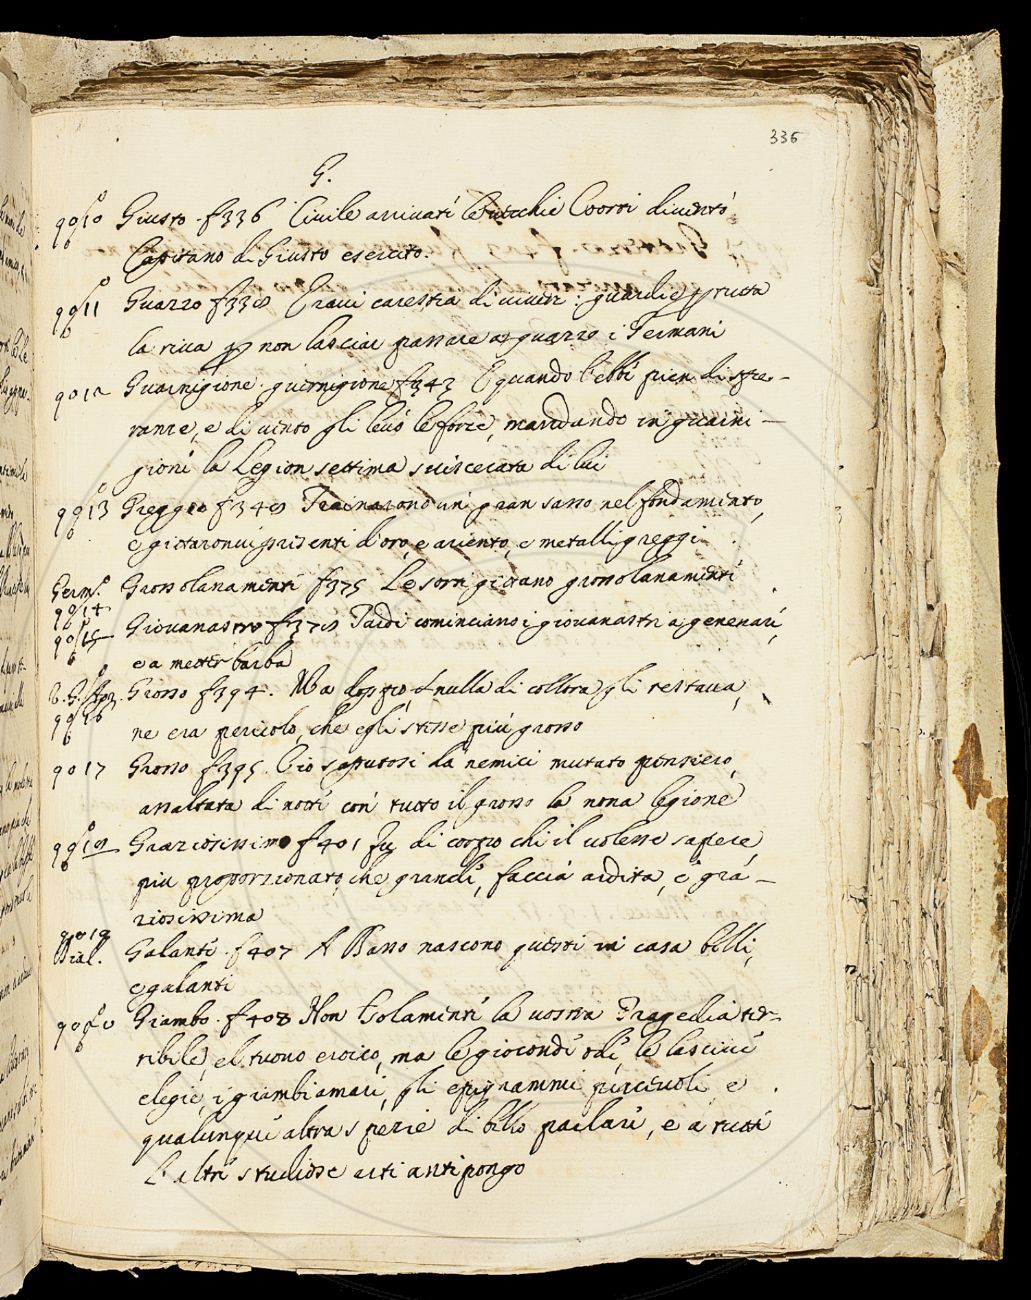 336
G.
Giusto. f336 Civile arrivati le vecchie Coorti diventò
Capitano di Giusto esercito.
9011 Guazzo f338 Eravi carestia di viveri: guardie per tutta
la riva per non lasciar passare a guazzo i Germani
9012 Guarnigione. guernigione f343 E quando l'ebbe pien di spe-
ranze, e di vento gli levò le forze, mandando in guarni-
gioni la Legion settima sviscerata di lui
9013 Greggio f348 Trainarono un gran sasso nel fondamento,
e gittaronvi presenti d'oro, e ariento, e metalli greggi
Germ.
9014 Grossolanamente f375 Le sorti gittano grossolanamente
9015 Giovanastro f378 Tardi cominciano i giovanastri a generare,
e a metter barba
Grosso f394. Ma doppio, nulla di collora gli restava,
9016 ne era pericolo, che egli stesse più grosso
9017 Grosso f395. Ciò saputosi da nemici mutato pensiero,
assaltata di notte con tutto il grosso la nona legione
9018 Graziosissimo f401 Fu di corpo chi il volesse sapere,
più proporzionato, che grande, faccia ardita, e gra-
ziosissima
9019
Dial. Galante. f407 A Basso nascono questi in casa belli,
e galanti
Giambo. f408 Non solamente la vostra Tragedia ter-
ribile, el tuono eroico, ma le gioconde ode, le lascive
elegie, i giambi amari, gli epigrammi piacevoli, e
qualunque altra spezie di bello parlare, e a tutte
l'altre studiose arti antipongo